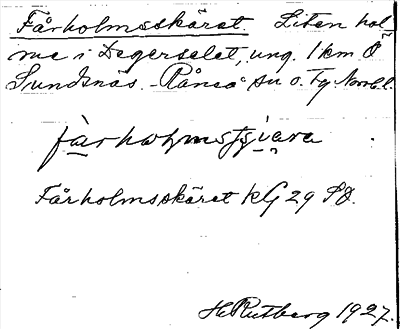 Fårholmsskäret. Liten hol-
me i Degerselet, ung. 1 km Ö
Sundnäs. Råneå sn o. Tg Norrb. l.
fårhoļmsʃʃiæra
Fårholmsskäret kG 29 SO.
H Rutberg 1927.